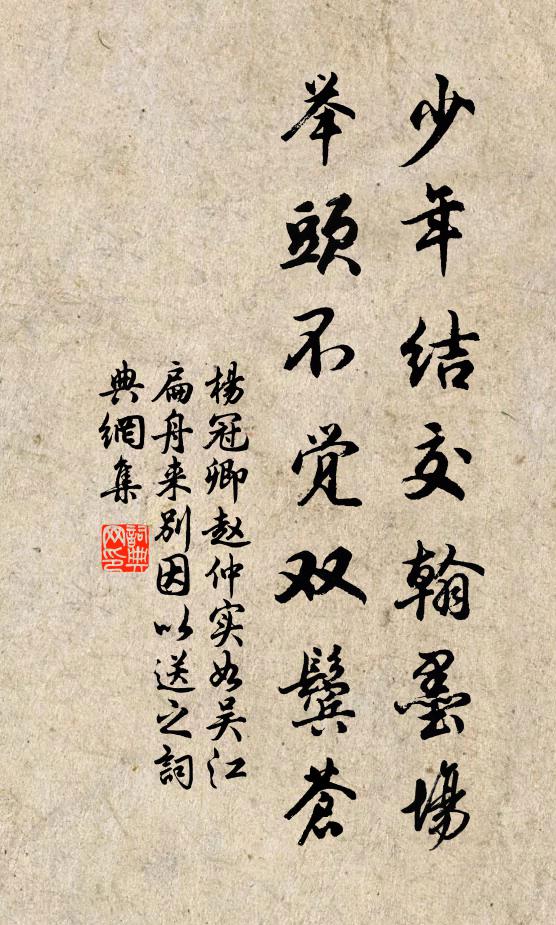 少年结交翰墨場
举頭不觉双鬓蒼
楊冠卿赵仲实如吴江
扁舟来别因以送之詞
典網集
詞典网印